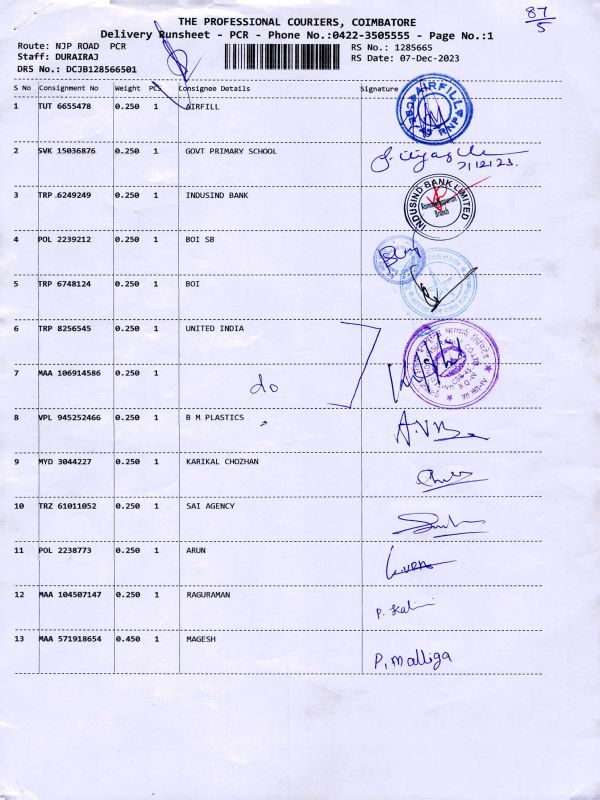 87
5
THE PROFESSIONAL COURIERS, COIMBATORE
Delivery Runsheet - PCR - Phone No.:0422-3505555 - Page No.:1
Route: NJP ROAD PCR RS No.: 1285665
Staff: DURAIRAJ RS Date: 07-Dec-2023
DRS No.: DCJB128566501
S No Consignment No Weight PCS Consignee Details Signature
1 TUT 6655478 0.250 1 AIRFILL
AIRFILL
2 SVK 15036876 0.250 1 GOVT PRIMARY SCHOOL
7/12/23.
3 TRP 6249249 0.250 1 INDUSIND BANK
INDUSIND BANK LIMITED
Branch
4 POL 2239212 0.250 1 BOI SB
5 TRP 6748124 0.250 1 BOI
6 TRP 8256545 0.250 1 UNITED INDIA
7 MAA 106914586 0.250 1 do
8 VPL 945252466 0.250 1 B M PLASTICS
9 MYD 3044227 0.250 1 KARIKAL CHOZHAN
10 TRZ 61011052 0.250 1 SAI AGENCY
11 POL 2238773 0.250 1 ARUN
12 MAA 104507147 0.250 1 RAGURAMAN
13 MAA 571918654 0.450 1 MAGESH
P. Malliga